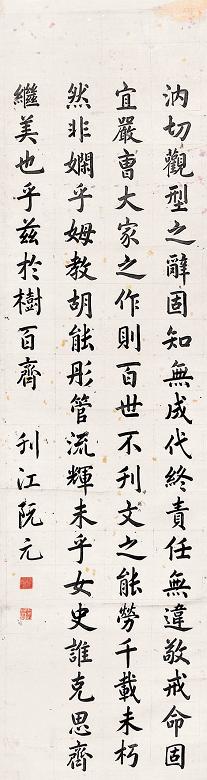 汭切觀型之辭固知無成代終責任無違敬戒命固
宜嚴曹大家之作則百世不刊文之能勞千載未朽
然非嫻乎姆教胡能彤管流輝未乎女史誰克思齊
繼美也乎茲於樹百齊 刊江阮元